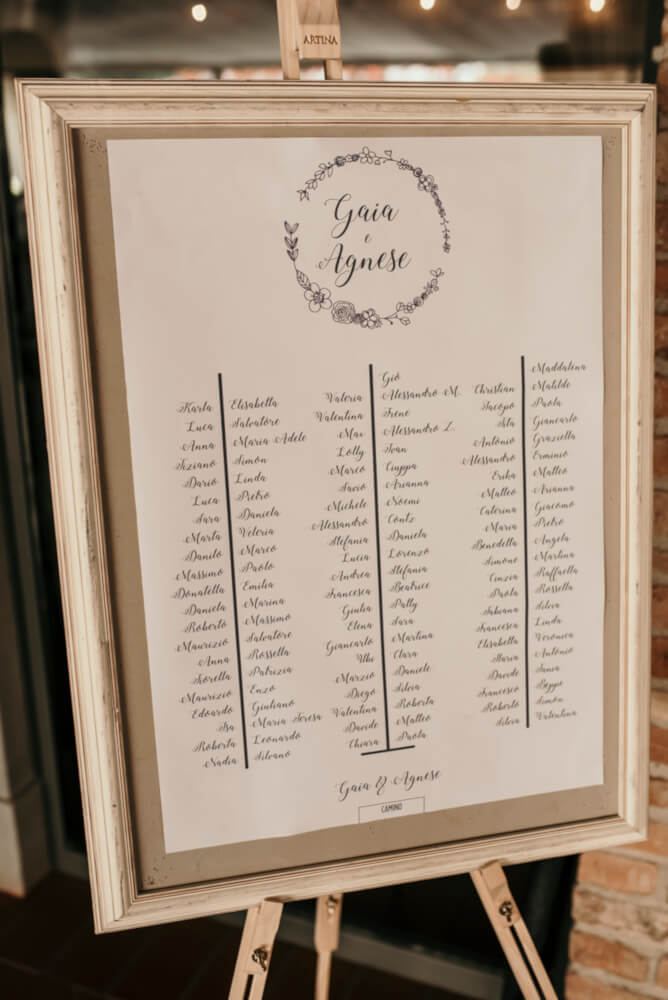 ARTINA
Gaia
e
Agnese
Karla
Luca
Anna
Tiziano
Dario
Luca
Sara
Marta
Danilo
Massimo
Donatella
Daniela
Roberto
Maurizio
Anna
Fiorella
Maurizio
Edoardo
Isa
Roberta
Nadia
Elisabetta
Salvatore
Maria Adele
Simon
Linda
Pietro
Daniela
Veleria
Marco
Paolo
Emilia
Marina
Massimo
Salvatore
Rossella
Patrizia
Enzo
Giuliano
Maria Teresa
Leonardo
Silvano
Valeria
Valentina
Max
Lolly
Marco
Savio
Michele
Alessandro
Stefania
Lucia
Andrea
Francesca
Giulia
Elena
Giancarlo
Ubi
Marzio
Diego
Valentina
Davide
Chiara
Giò
Alessandro M.
Irene
Alessandro Z.
Ivan
Ciuppa
Arianna
Noemi
Contz
Daniela
Lorenzo
Stefania
Beatrice
Patty
Sara
Martina
Clara
Daniele
Silvia
Roberta
Matteo
Paola
Christian
Jacopo
Ista
Antonio
Alessandro
Erika
Matteo
Caterina
Maria
Benedetta
Simono
Cinzia
Paola
Fabiana
Francesca
Elisabetta
Ilaria
Davide
Francesco
Roberto
Silvia
Maddalena
Matilde
Paola
Giancarlo
Graziella
Erminio
Matteo
Arianna
Giacomo
Pietro
Angela
Martina
Raffaella
Rossella
Silvia
Linda
Veronica
Antonio
Sania
Beppe
Simon
Valentina
Gaia & Agnese
CAMINO